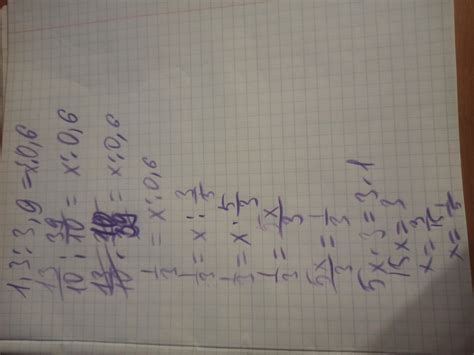 1,3 : 3,9 = x : 0,6
13/10 : 39/10 = x : 0,6
= x : 0,6
1/3 = x : 0,6
1/3 = x : 3/5
1/3 = x · 5/3
1/3 = 5x/3
5x/3 = 1/3
5x · 3 = 3 · 1
15x = 3
x = 3/15
x = 1/5